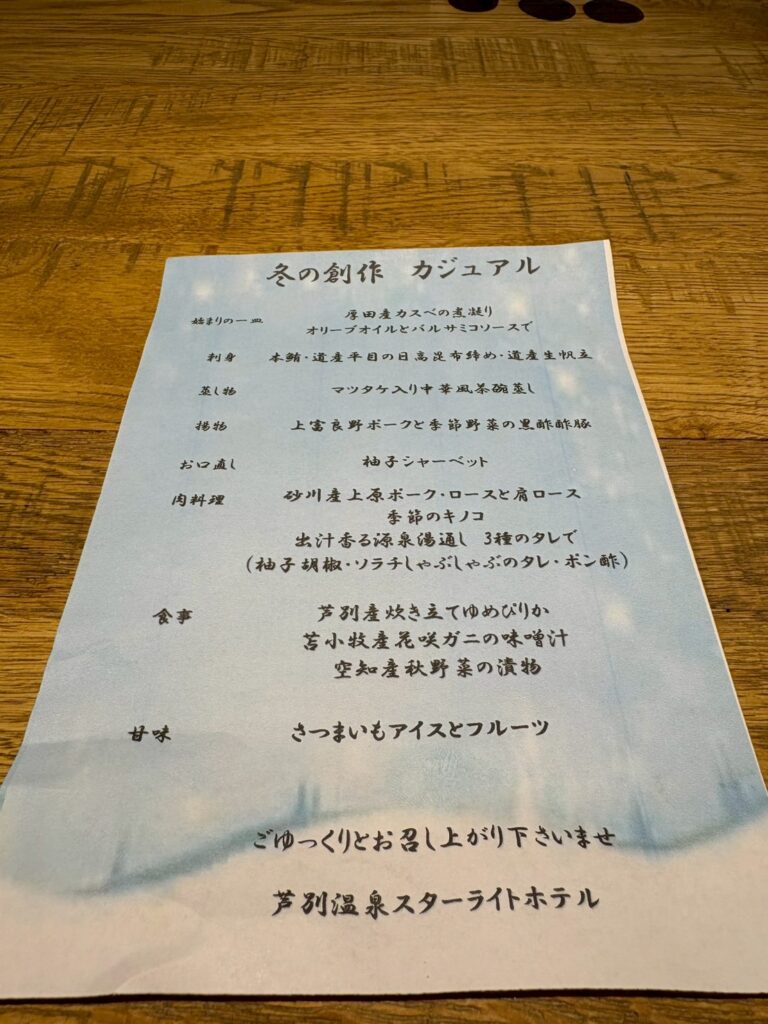 冬の創作 カジュアル
始まりの一皿 厚田産カスベの煮凝り
オリーブオイルとバルサミコソースで
刺身 本鮪・道産平目の日高昆布締め・道産生帆立
蒸し物 マツタケ入り中華風茶碗蒸し
揚物 上富良野ポークと季節野菜の黒酢酢豚
お口直し 柚子シャーベット
肉料理 砂川産上原ポーク・ロースと肩ロース
季節のキノコ
出汁香る源泉湯通し 3種のタレで
(柚子胡椒・ソラチしゃぶしゃぶのタレ・ポン酢)
食事 芦別産炊き立てゆめぴりか
苫小牧産花咲ガニの味噌汁
空知産秋野菜の漬物
甘味 さつまいもアイスとフルーツ
ごゆっくりとお召し上がり下さいませ
芦別温泉スターライトホテル